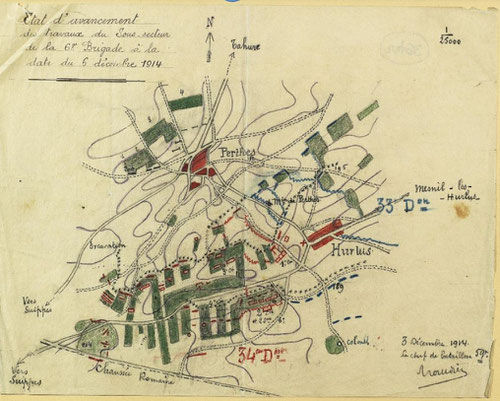 Etat d'avancement
des travaux du Sous-secteur
de la 61e Brigade à la
date du 5 décembre 1914
N
Tahure
1/25000
4
Perthes
195
Mesnil-les-
-Hurlus
33e Don
Hurlus
Excavation
Vers
Suippes
34e Don
Chaussée Romaine
Vers
Suippes
3 Décembre 1914.
Le chef de bataillon